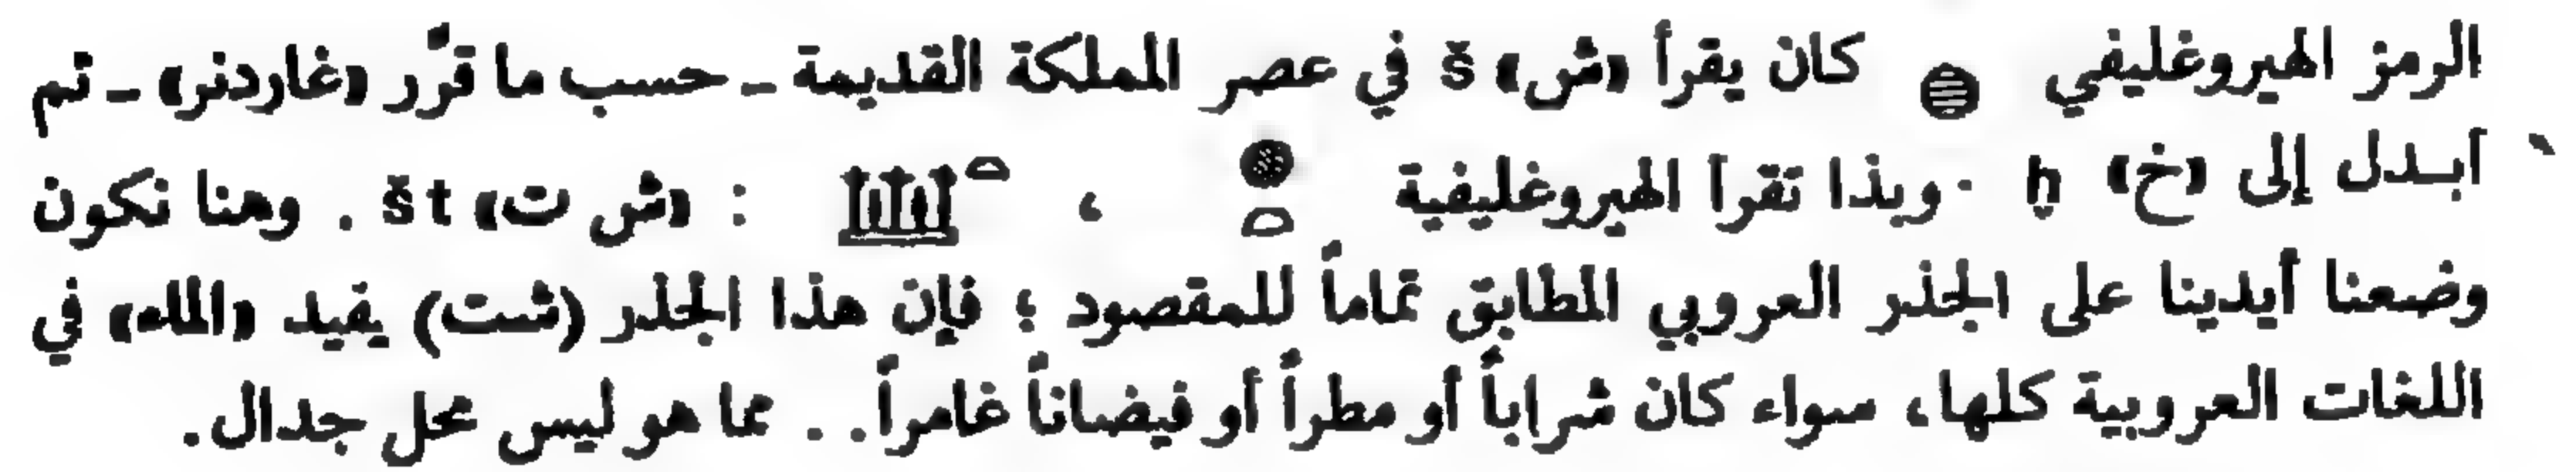 الرمز الهيروغليفي 𓐍 كان يقرأ «ش» š في عصر المملكة القديمة ـ حسب ما قرَّر «غاردنر» ـ ثم
أبـدل إلى «خ» ḫ . وبذا تقرأ الهيروغليفية 𓐍𓏏 ، 𓏏𓆷 : «ش ت» št . وهنا نكون
وضعنا أيدينا على الجذر العروبي المطابق تماماً للمقصود ؛ فإن هذا الجذر (شت) يفيد «الماء» في
اللغات العروبية كلها، سواء كان شراباً أو مطراً أو فيضاناً غامراً . . مما هو ليس محل جدال.